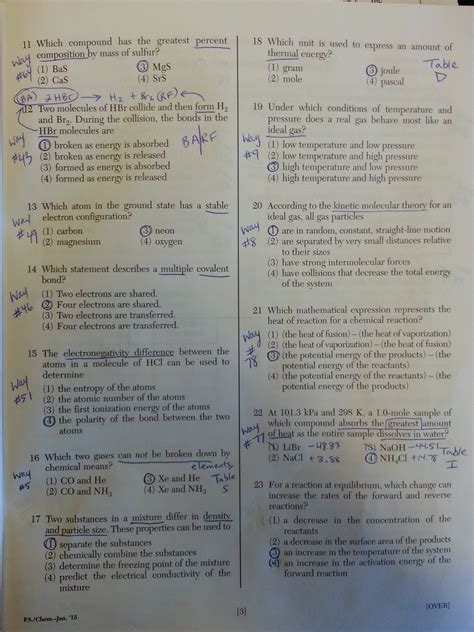 11 Which compound has the greatest percent
composition by mass of sulfur?
Way
#64
(1) BaS (3) MgS
(2) CaS (4) SrS
(BA) 2HBr → H2 + Br2 (RF)
12 Two molecules of HBr collide and then form H2
and Br2. During the collision, the bonds in the
HBr molecules are
Way
#43
(1) broken as energy is absorbed
BA/RF
(2) broken as energy is released
(3) formed as energy is absorbed
(4) formed as energy is released
13 Which atom in the ground state has a stable
electron configuration?
Way
#49
(1) carbon (3) neon
(2) magnesium (4) oxygen
14 Which statement describes a multiple covalent
bond?
Way
#46
(1) Two electrons are shared.
(2) Four electrons are shared.
(3) Two electrons are transferred.
(4) Four electrons are transferred.
15 The electronegativity difference between the
atoms in a molecule of HCl can be used to
determine
Way
#51
(1) the entropy of the atoms
(2) the atomic number of the atoms
(3) the first ionization energy of the atoms
(4) the polarity of the bond between the two
atoms
16 Which two gases can not be broken down by
chemical means?
elements
Way
#5
(1) CO and He (3) Xe and He
(2) CO and NH3 (4) Xe and NH3
Table
S
17 Two substances in a mixture differ in density
and particle size. These properties can be used to
(1) separate the substances
(2) chemically combine the substances
(3) determine the freezing point of the mixture
(4) predict the electrical conductivity of the
mixture
18 Which unit is used to express an amount of
thermal energy?
(1) gram (3) joule
(2) mole (4) pascal
Table
D
19 Under which conditions of temperature and
pressure does a real gas behave most like an
ideal gas?
Way
#9
(1) low temperature and low pressure
(2) low temperature and high pressure
(3) high temperature and low pressure
(4) high temperature and high pressure
20 According to the kinetic molecular theory for an
ideal gas, all gas particles
Way
#8
(1) are in random, constant, straight-line motion
(2) are separated by very small distances relative
to their sizes
(3) have strong intermolecular forces
(4) have collisions that decrease the total energy
of the system
21 Which mathematical expression represents the
heat of reaction for a chemical reaction?
Way
#
78
(1) (the heat of fusion) – (the heat of vaporization)
(2) (the heat of vaporization) – (the heat of fusion)
(3) (the potential energy of the products) – (the
potential energy of the reactants)
(4) (the potential energy of the reactants) – (the
potential energy of the products)
22 At 101.3 kPa and 298 K, a 1.0-mole sample of
which compound absorbs the greatest amount
of heat as the entire sample dissolves in water?
Way
#77
(1) LiBr -48.83 (3) NaOH -44.51
(2) NaCl +3.88 (4) NH4Cl +14.78
Table
I
23 For a reaction at equilibrium, which change can
increase the rates of the forward and reverse
reactions?
(1) a decrease in the concentration of the
reactants
(2) a decrease in the surface area of the products
(3) an increase in the temperature of the system
(4) an increase in the activation energy of the
forward reaction
P.S./Chem.–Jan. '15
[3]
[OVER]